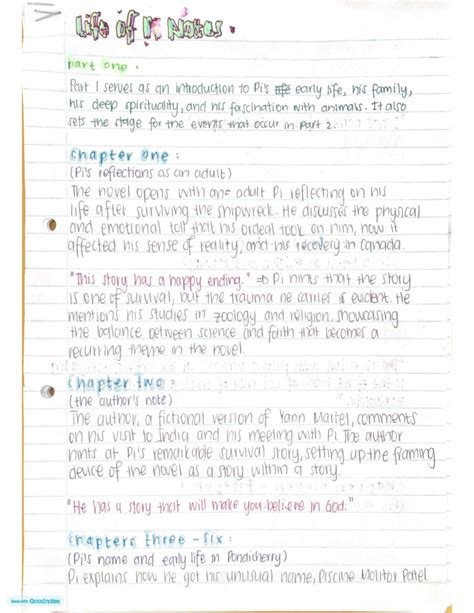 Life of Pi Notes.
part one.
Part 1 serves as an introduction to Pi's early life, his family,
his deep spirituality, and his fascination with animals. It also
sets the stage for the events that occur in part 2.
Chapter One:
(Pi's reflections as an adult)
The novel opens with one adult Pi reflecting on his
life after surviving the shipwreck. He discusses the physical
and emotional toll that his ordeal took on him, how it
affected his sense of reality, and his recovery in Canada.
"This story has a happy ending." → Pi hints that the story
is one of survival, but the trauma he carries is evident. He
mentions his studies in zoology and religion, showcasing
the balance between science and faith that becomes a
recurring theme in the novel.
Chapter Two:
(the author's note)
The author, a fictional version of Yann Martel, comments
on his visit to India and his meeting with Pi. The author
hints at Pi's remarkable survival story, setting up the framing
device of the novel as a story within a story.
"He has a story that will make you believe in God."
Chapters three - six:
(Pi's name and early life in Pondicherry)
Pi explains how he got his unusual name, Piscine Molitor Patel
Made with Goodnotes